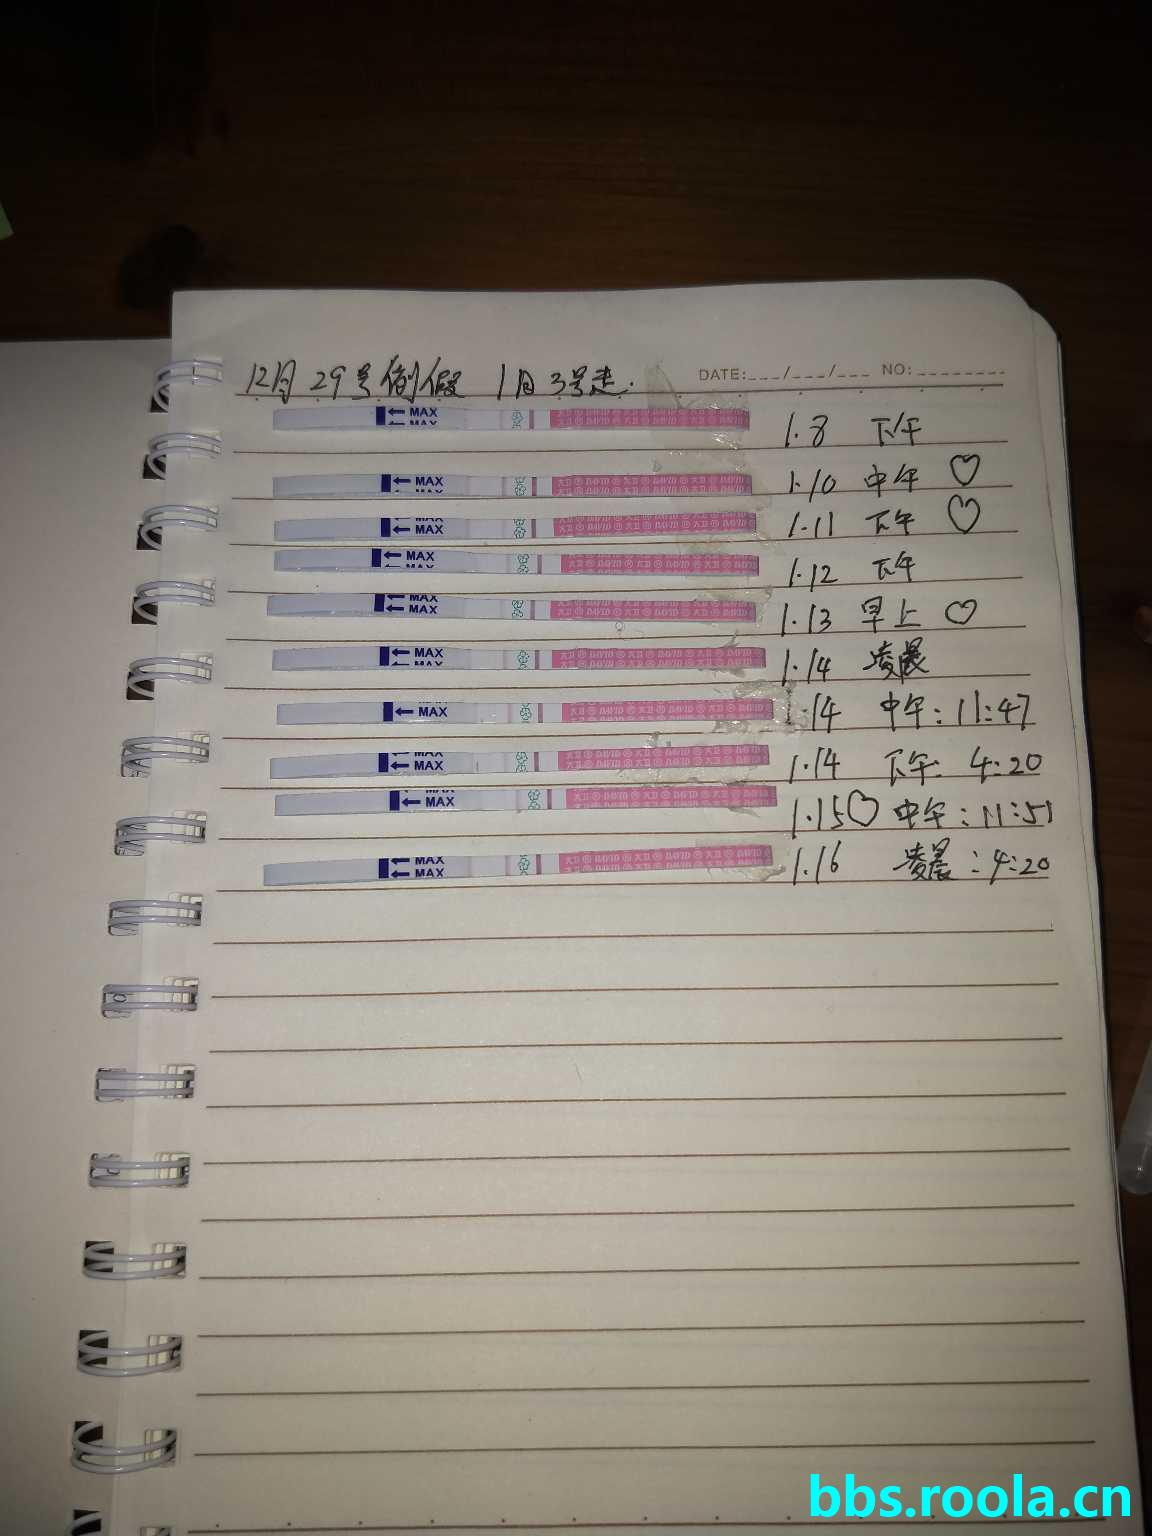 12月29号例假 1月3号走.
DATE:___/___/___ NO:________
MAX 1.8 下午
MAX 1.10 中午 ♡
MAX 1.11 下午 ♡
MAX 1.12 下午
MAX 1.13 早上 ♡
MAX 1.14 凌晨
MAX 1.14 中午:11:47
MAX 1.14 下午 4:20
MAX 1.15♡ 中午:11:51
MAX 1.16 凌晨:4:20
bbs.roola.cn